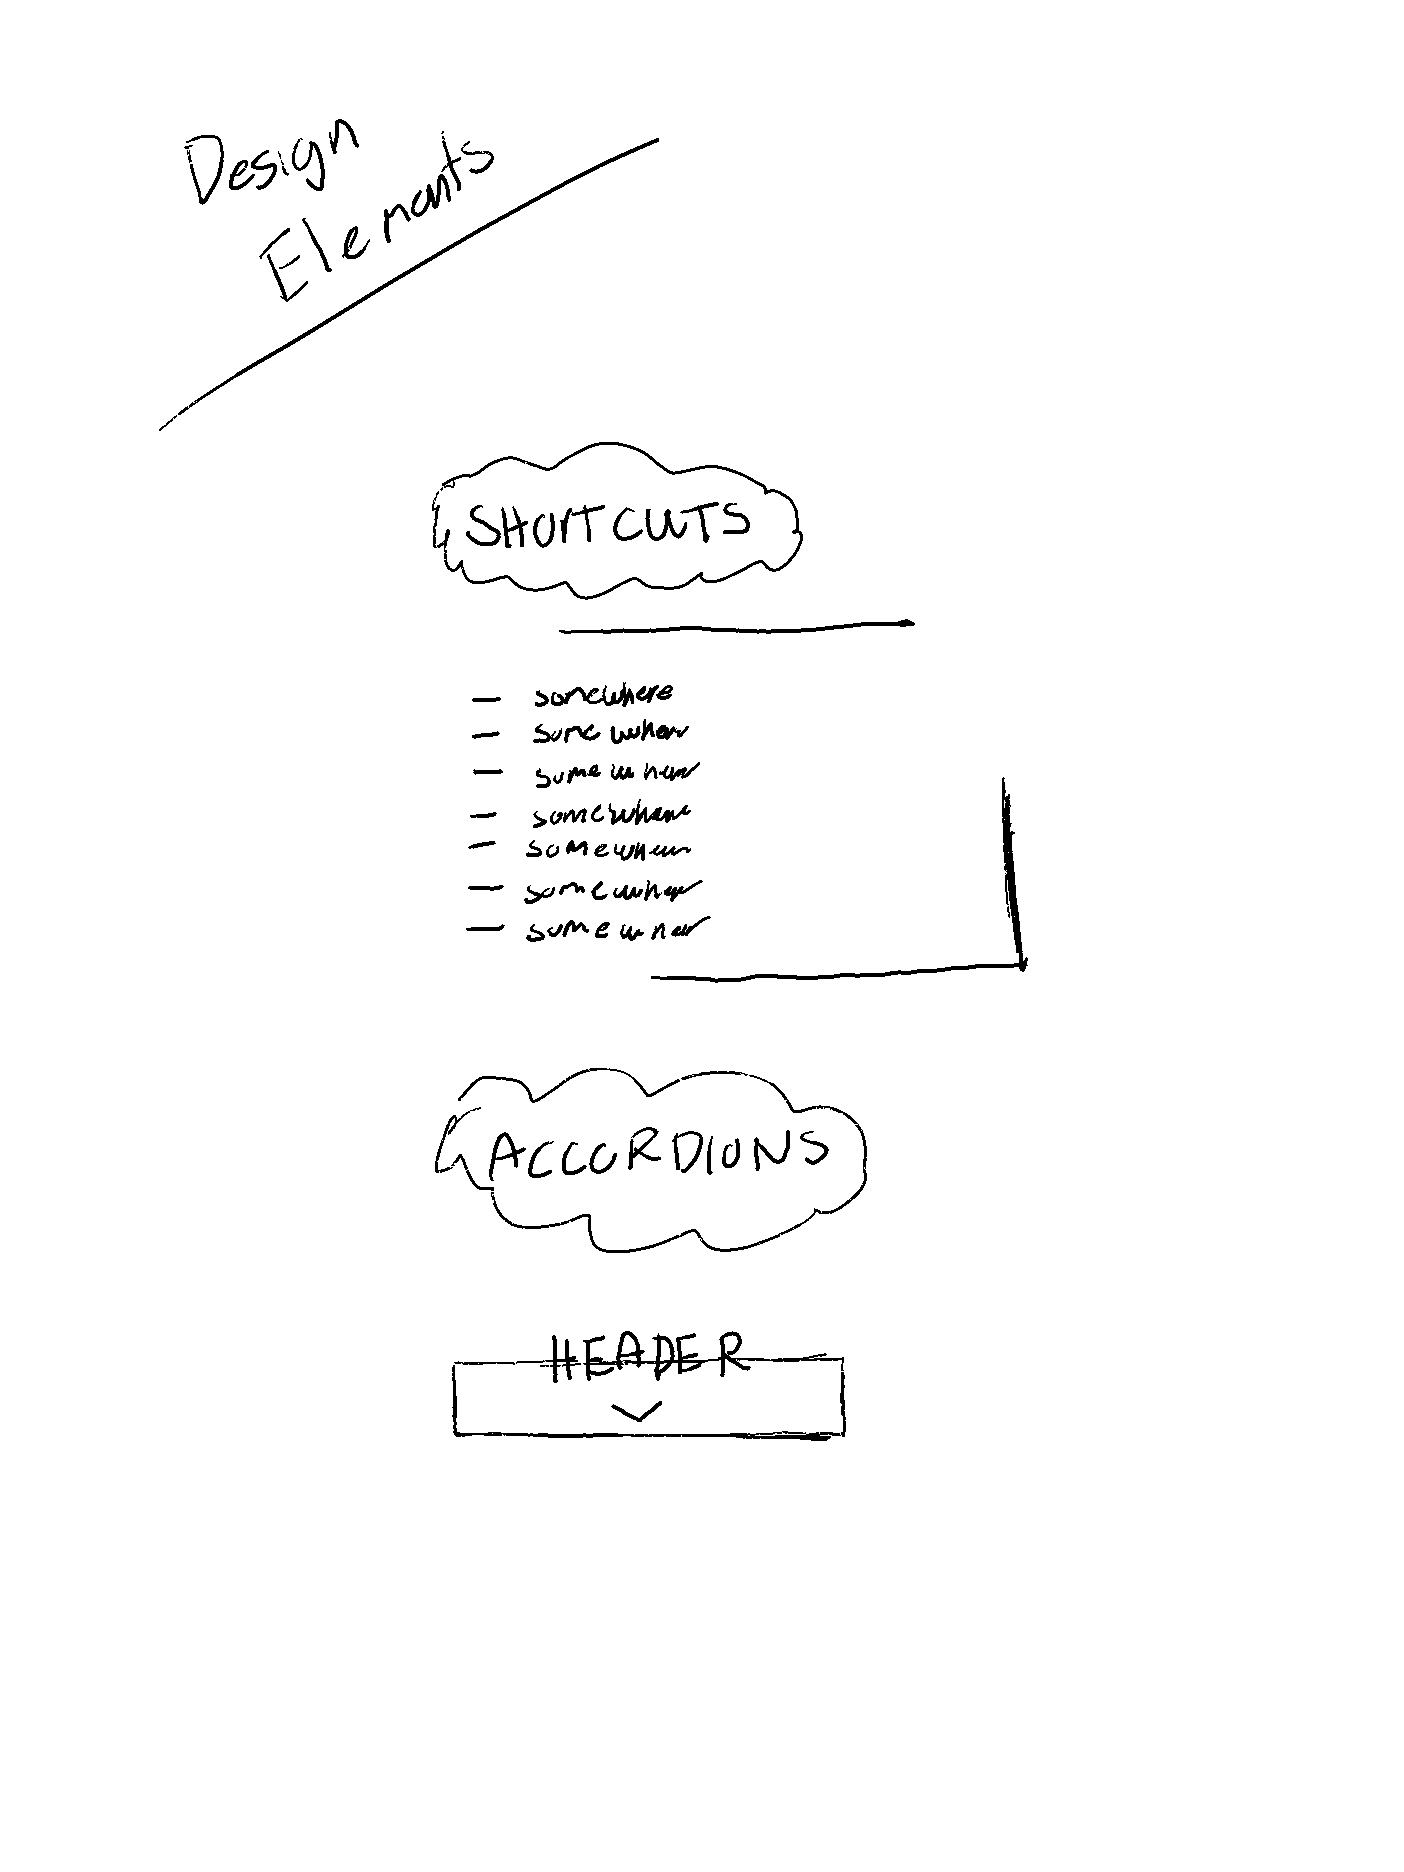 Design
Elements
SHORTCUTS
— somewhere
— somewhere
— somewhere
— somewhere
— somewhere
— somewhere
— somewhere
ACCORDIONS
HEADER